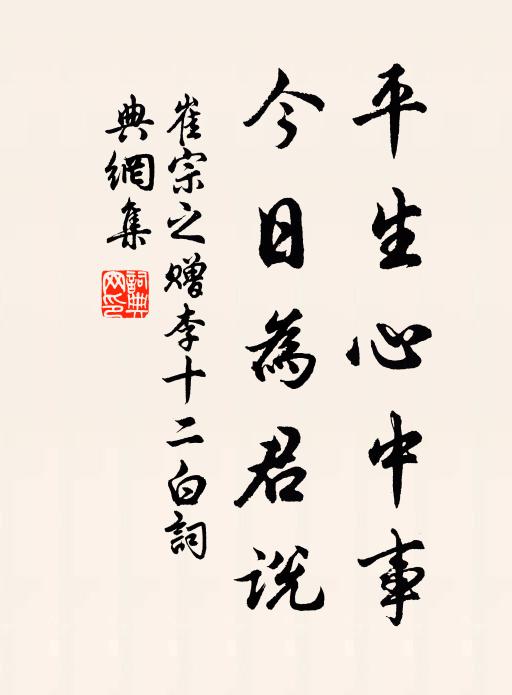 平生心中事
今日為君説
崔宗之贈李十二白詞
典網集
詞典
网印